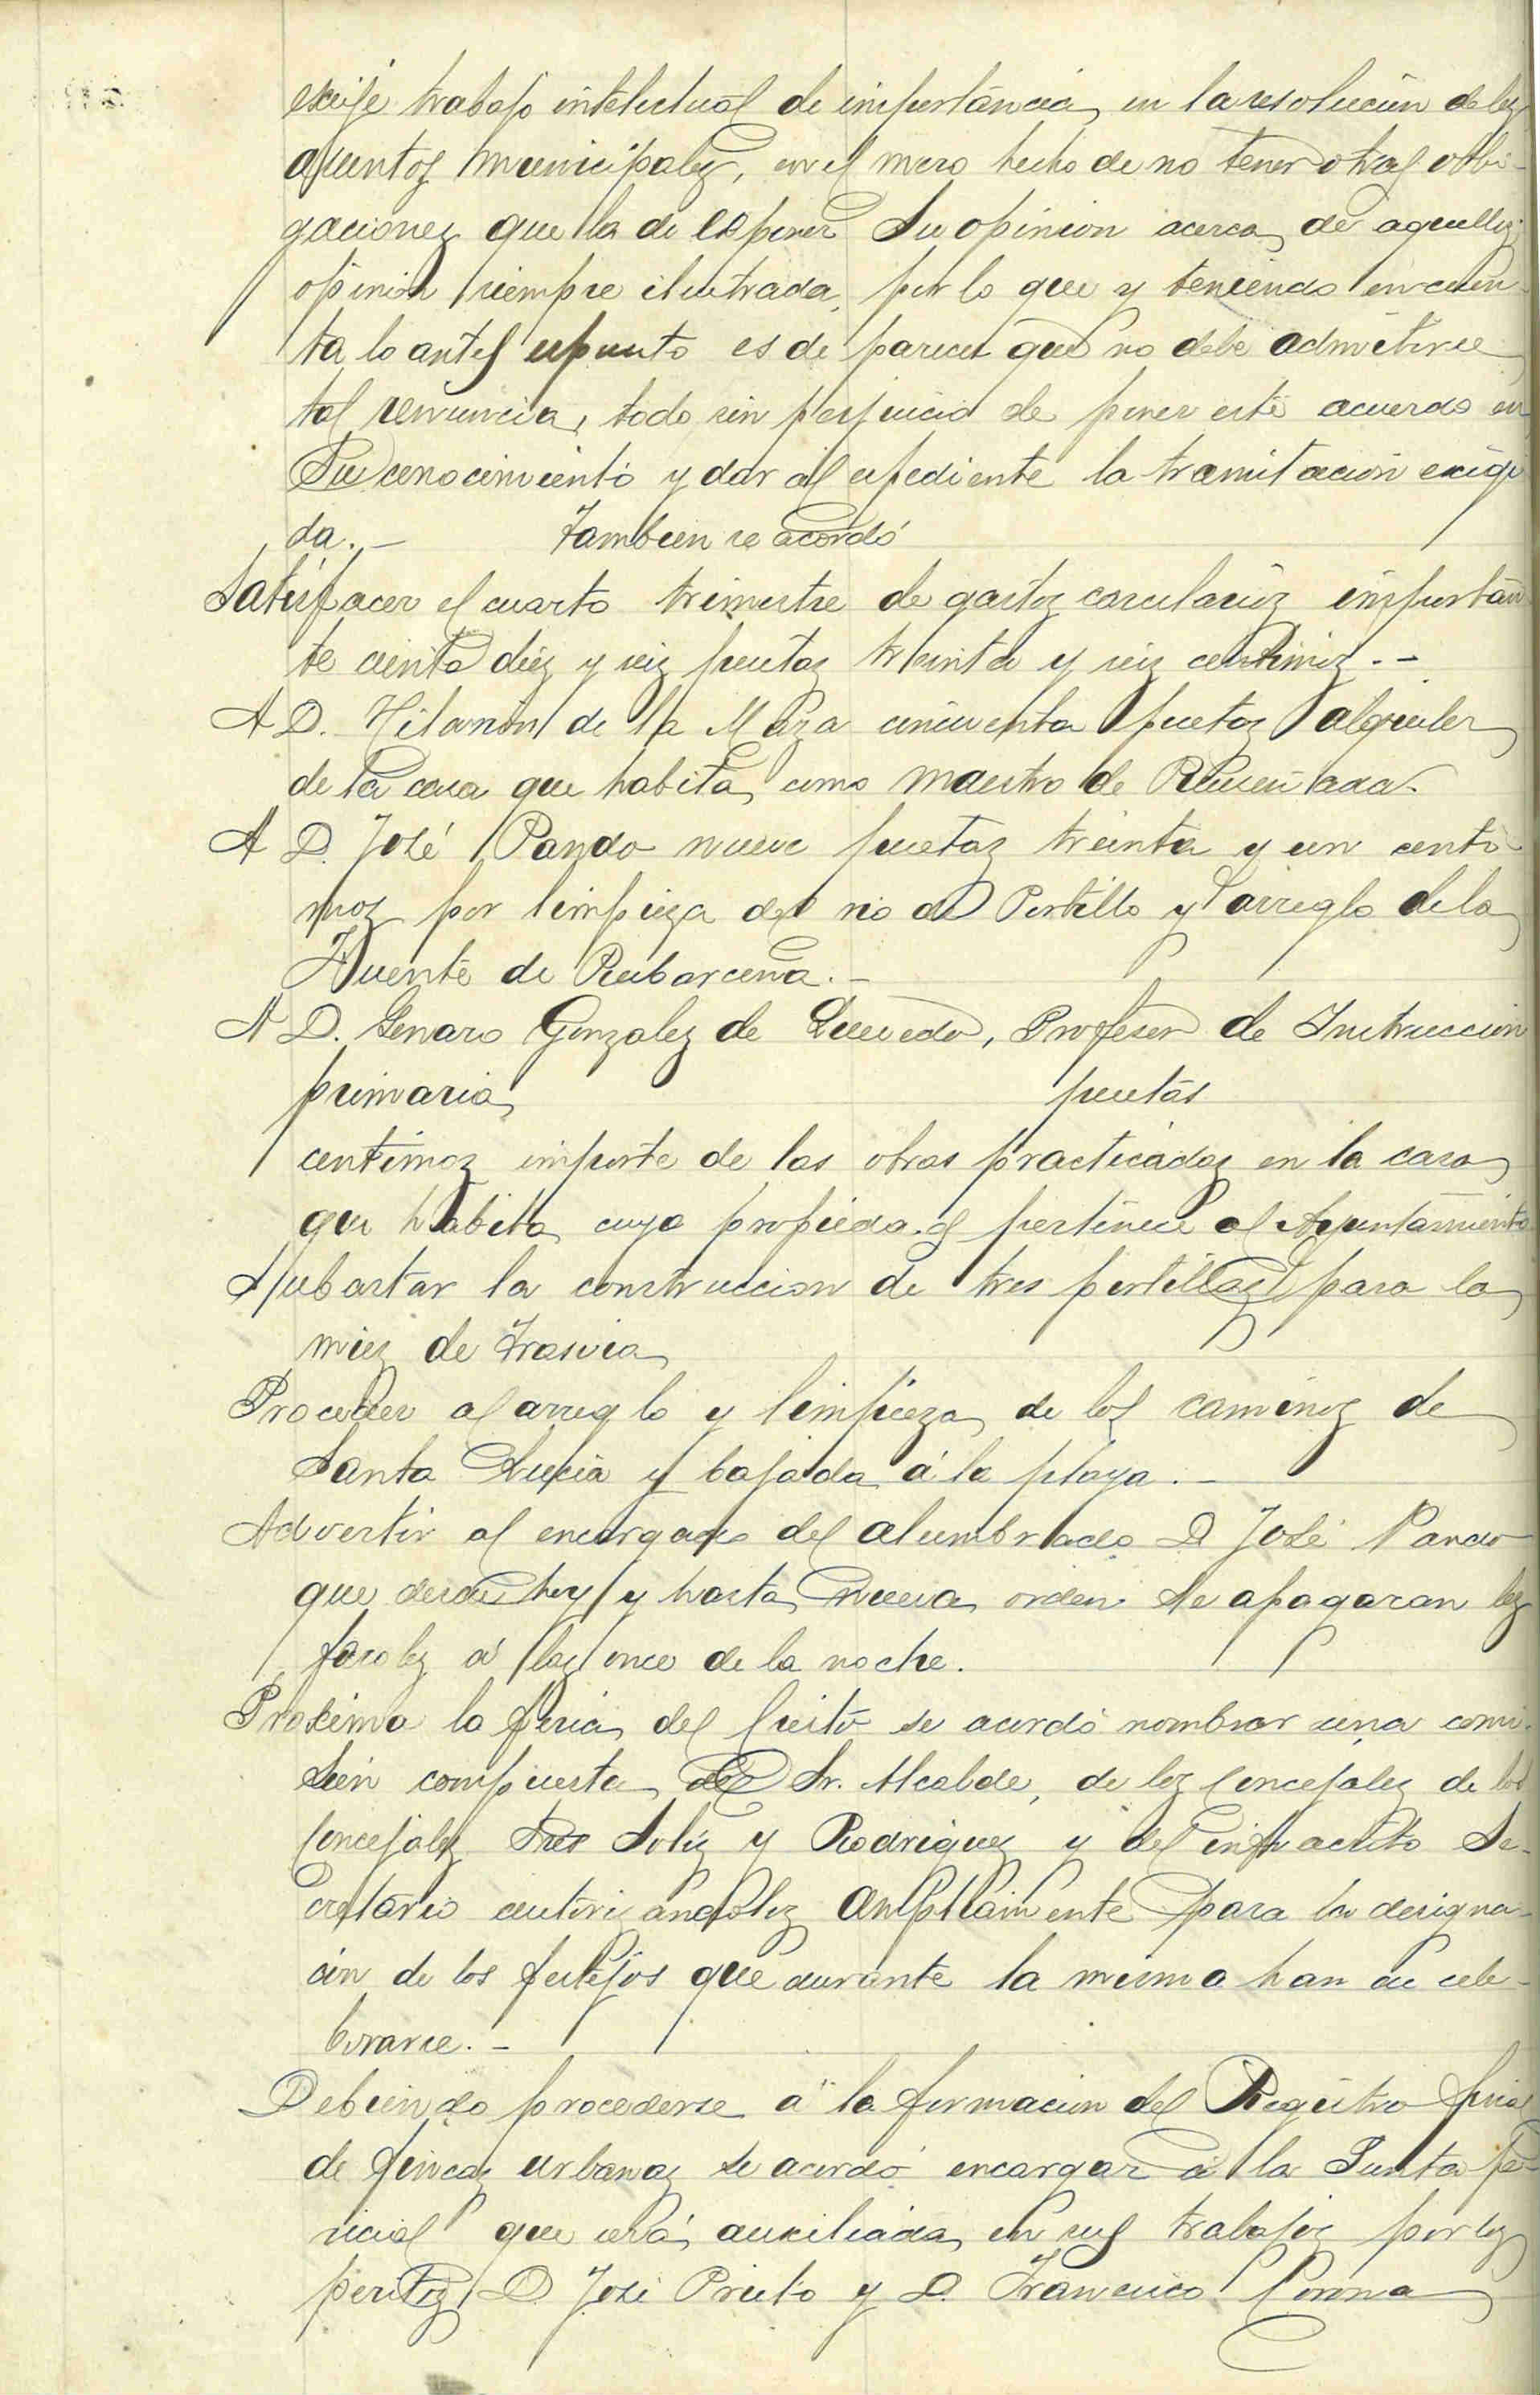 exije trabajo intelectual de importáncia, en la resolucion de los
asuntos municipales, en el mero hecho de no tener otras obli-
gaciones que la de esponer su opinion acerca de aquellos,
opinion siempre ilustrada, por lo que y teniendo en cuen-
ta lo antes espuesto es de parecer que no debe admitirse
tal renuncia, todo sin perjuicio de poner este acuerdo en
su conocimiento y dar al espediente la tramitacion exigi
da. — Tambien se acordó
Satisfacer el cuarto trimestre de gastos carcelarios importan
te ciento diez y seis pesetas treinta y seis centimos. —
A D. Hilarion de la Maza cincuenta pesetas alquiler
de la casa que habita, como maestro de Ruiseñada.
A D. José Pando nueve pesetas treinta y un centi-
mos por limpieza del rio del Portillo y arreglo de la
Fuente de Rubarcena. —
A D. Genaro Gonzalez de Quevedo, Profesor de Instruccion
primaria, pesetas
centimos importe de las obras practicadas en la casa
que habita cuya propiedad pertenece al Ayuntamiento
Subastar la construccion de tres portillas para la
mies de Trasvia
Proceder al arreglo y limpieza de los caminos de
Santa Lucia y bajada á la playa. —
Advertir al encargado del alumbrado D. José Pando
que desde hoy y hasta nueva orden se apagaran los
faroles á las once de la noche.
Proxima la feria del Cristo se acordó nombrar una comi-
sion compuesta del Sr. Alcalde, de los Concejales de los
Concejales Sres Solis y Rodriguez y del infrascrito Se-
cretario autorizandoles ampliamente para la designa-
cion de los festejos que durante la misma han de cele-
brarse. —
Debiendo procederse á la formacion del Registro fiscal
de fincas urbanas se acordó encargar á la Junta pe-
ricial que será auxiliada en sus trabajos por los
peritos D. José Prieto y D. Francisco Corona